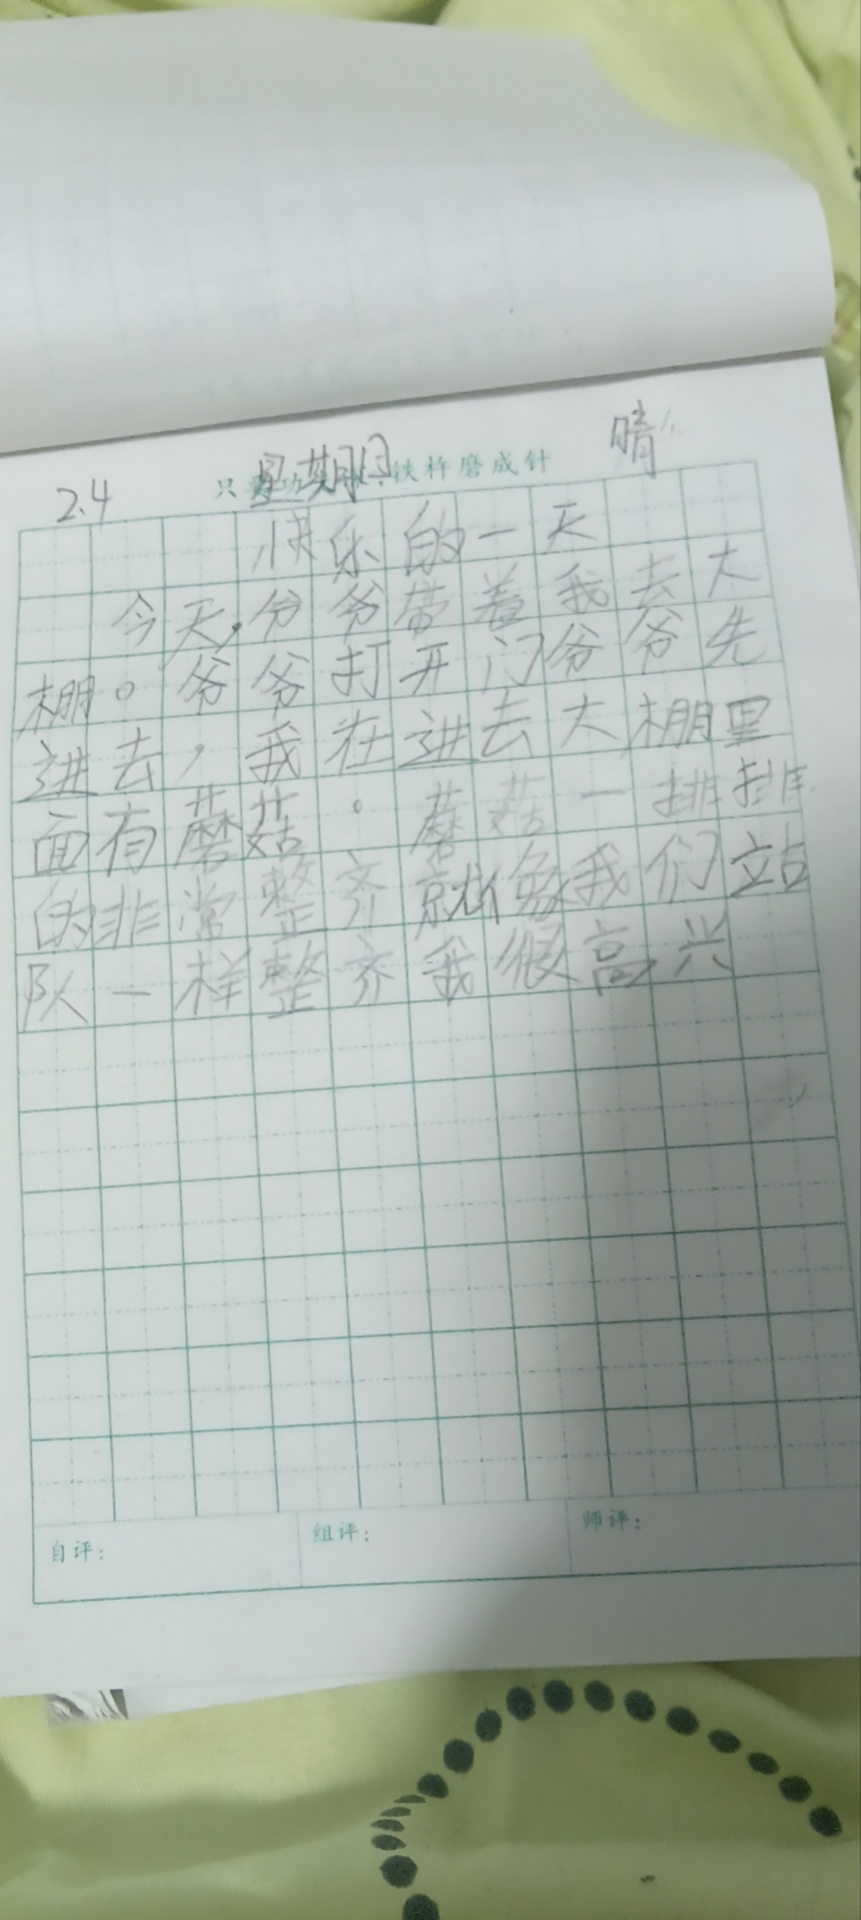 2.4 星期日 晴
只要功 铁杵磨成针
快乐的一天
今天,爷爷带着我去大
棚。爷爷打开门爷爷先
进去,我在进去大棚里
面有蘑菇。蘑菇一排排
的非常整齐就像我们站
队一样整齐我很高兴
自评: 组评: 师评: